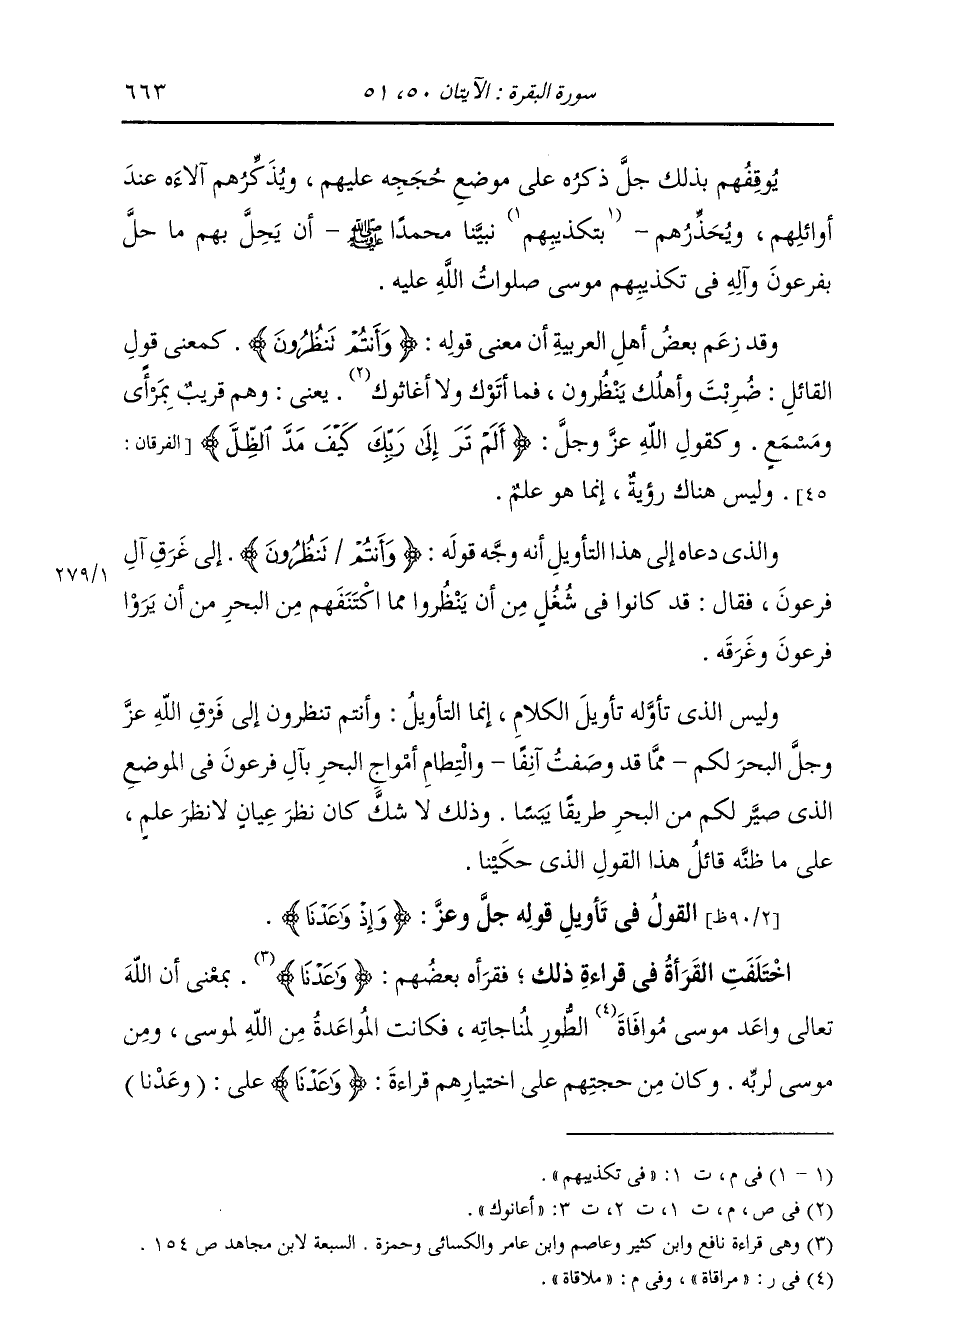 سورة البقرة : الآيتان ٥٠، ٥١ ٦٦٣
يُوقِفُهم بذلك جلَّ ذكرُه على موضعِ حُجَجِه عليهم ، ويُذَكِّرُهم آلاءَه عندَ
أوائلِهم ، ويُحَذِّرُهم - (١بتكذيبِهم١) نبيَّنا محمدًا ﷺ - أن يَحِلَّ بهم ما حلَّ
بفرعونَ وآلِهِ فى تكذيبِهم موسى صلواتُ اللَّهِ عليه .
وقد زعَم بعضُ أهلِ العربيةِ أن معنى قولِه : ﴿ وَأَنتُمْ تَنظُرُونَ ﴾ . كمعنى قولِ
القائلِ : ضُرِبْتَ وأهلُك يَنْظُرون ، فما أتَوْك ولا أغاثوك(٢) . يعنى : وهم قريبٌ بِمَرْأًى
ومَسْمَعٍ . وكقولِ اللَّهِ عزَّ وجلَّ : ﴿ أَلَمْ تَرَ إِلَىٰ رَبِّكَ كَيْفَ مَدَّ ٱلظِّلَّ ﴾ [ الفرقان :
٤٥] . وليس هناك رؤيةٌ ، إنما هو علمٌ .
والذى دعاه إلى هذا التأويلِ أنه وجَّه قولَه : ﴿ وَأَنتُمْ / تَنظُرُونَ ﴾ . إلى غَرَقِ آلِ
٢٧٩/١
فرعونَ ، فقال : قد كانوا فى شُغُلٍ مِن أن يَنْظُروا مما اكْتَنَفَهم مِن البحرِ من أن يَرَوْا
فرعونَ وغَرَقَه .
وليس الذى تأوَّله تأويلَ الكلامِ ، إنما التأويلُ : وأنتم تنظرون إلى فَرْقِ اللَّهِ عزَّ
وجلَّ البحرَ لكم - ممَّا قد وصَفتُ آنِفًا - والْتِطامِ أمْواجِ البحرِ بآلِ فرعونَ فى الموضعِ
الذى صيَّر لكم من البحرِ طريقًا يَبَسًا . وذلك لا شكَّ كان نظرَ عِيانٍ لا نظرَ علمٍ ،
على ما ظنَّه قائلُ هذا القولِ الذى حكَيْنا .
[٩٠/٢ظ] القولُ فى تَأويلِ قولِه جلَّ وعزَّ : ﴿ وَإِذْ وَٰعَدْنَا ﴾ .
اخْتَلَفَتِ القَرَأَةُ فى قراءةِ ذلك ؛ فقرَأه بعضُهم : ﴿ وَٰعَدْنَا ﴾(٣) . بمعْنى أن اللَّهَ
تعالى واعَد موسى مُوافَاةَ(٤) الطُّورِ لمُناجاتِه ، فكانت المُواعَدةُ مِن اللَّهِ لموسى ، ومِن
موسى لربِّه . وكان مِن حجتِهم على اختيارِهم قراءةَ : ﴿ وَٰعَدْنَا ﴾ على : ( وعَدْنا )
(١ - ١) فى م، ت ١: « فى تكذيبهم» .
(٢) فى ص ، م ، ت ١، ت ٢، ت ٣: «أعانوك» .
(٣) وهى قراءة نافع وابن كثير وعاصم وابن عامر والكسائى وحمزة . السبعة لابن مجاهد ص ١٥٤ .
(٤) فى ر: « مراقاة» ، وفى م : « ملاقاة» .